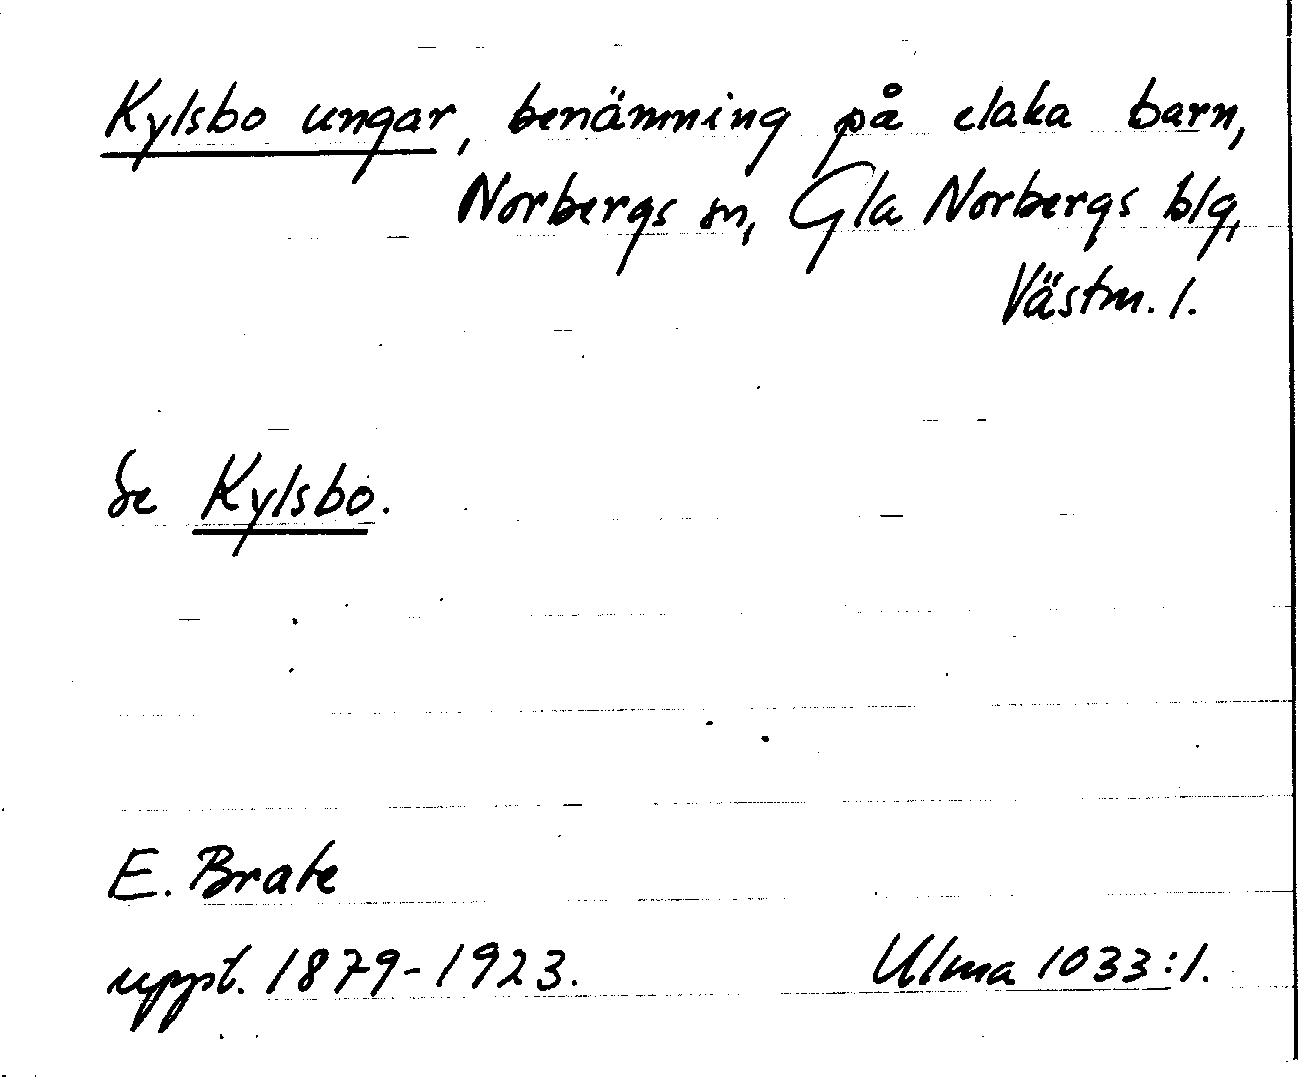 Kylsbo ungar, benämning på elaka barn,
Norbergs sn, Gla Norbergs blg,
Västm. l.
Se Kylsbo.
E. Brate
uppt. 1879-1923. Ulma 1033:1.